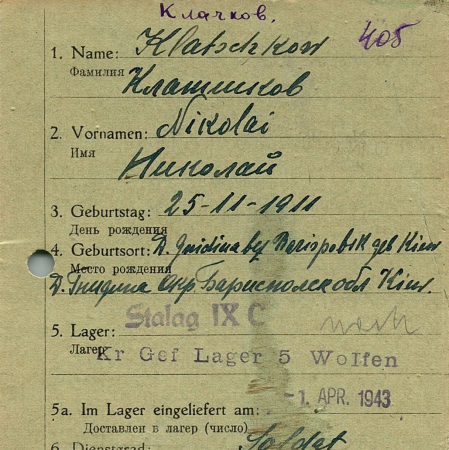 Клачков.
405
1. Name: Klatschkow
Фамилия
Клатшков
2. Vornamen: Nikolai
Имя
Николай
3. Geburtstag: 25-11-1911
День рождения
4. Geburtsort: D. Gnidina bez Barispolsk geb Kiew
Место рождения
Д. Гнидина Окр Барисполск обл Kiew.
Stalag IX C
5. Lager: nach
Лагерь
Kr Gef Lager 5 Wolfen
-1. APR. 1943
5a. Im Lager eingeliefert am:
Доставлен в лагерь (число)
6. Dienstgrad: Soldat